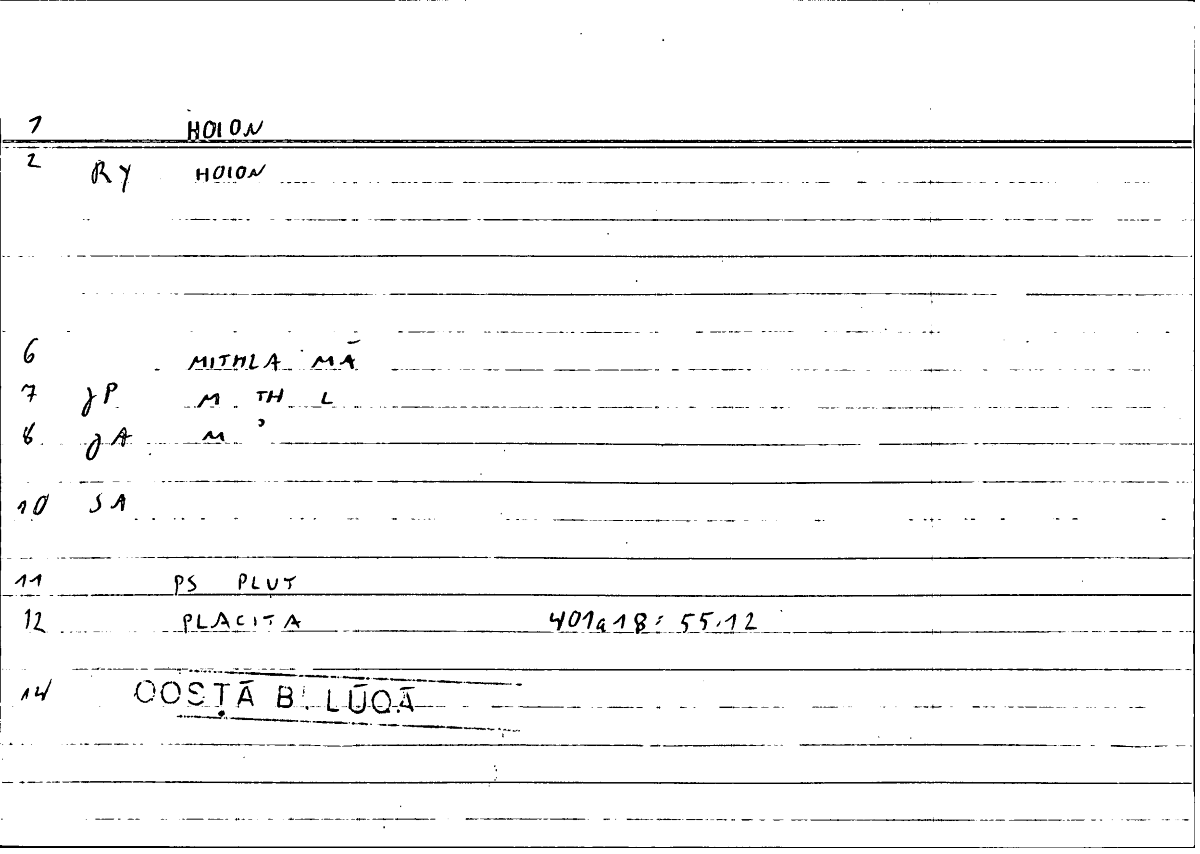 1 HOION
2 RY HOION
6 MITHLA MĀ
7 JP M TH L
8 JA M ʾ
10 SA
11 PS PLUT
12 PLACITA 401a18 = 55.12
14 QOSṬĀ B. LŪQĀ